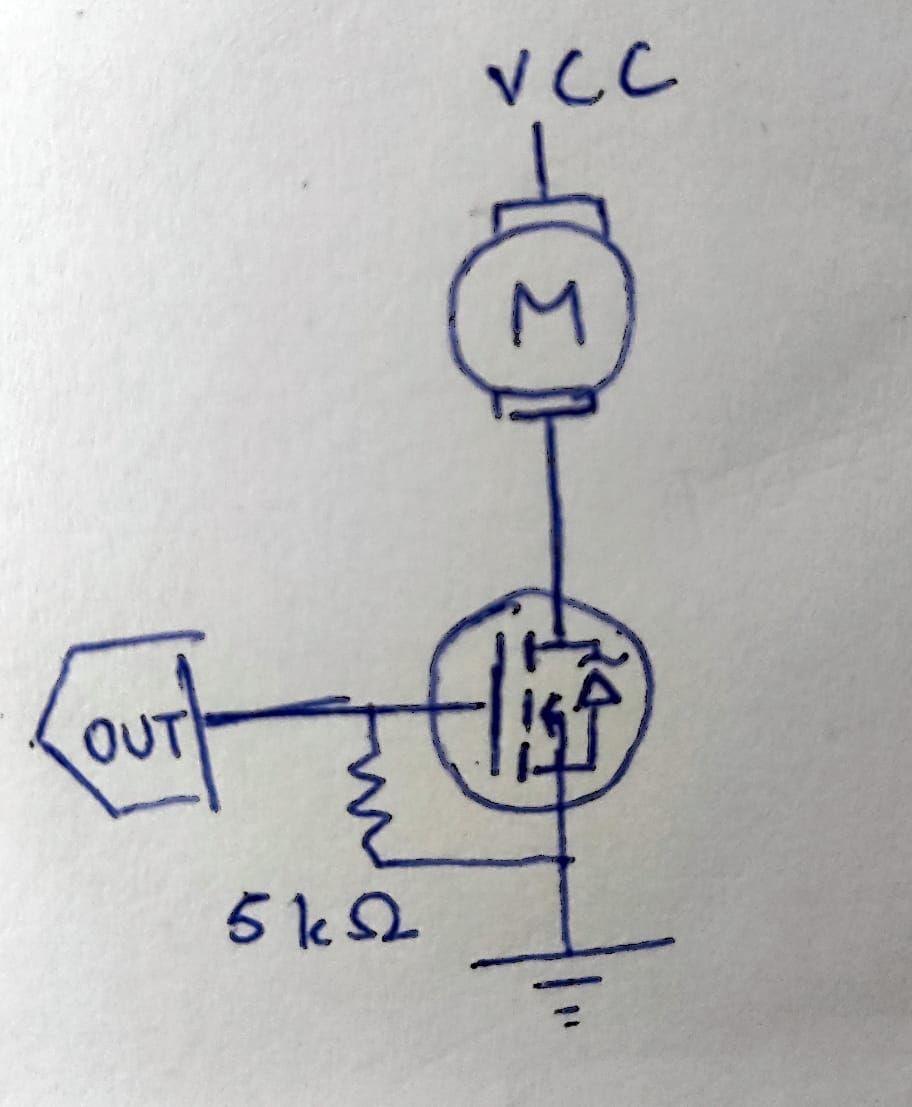 VCC
M
OUT
5kΩ